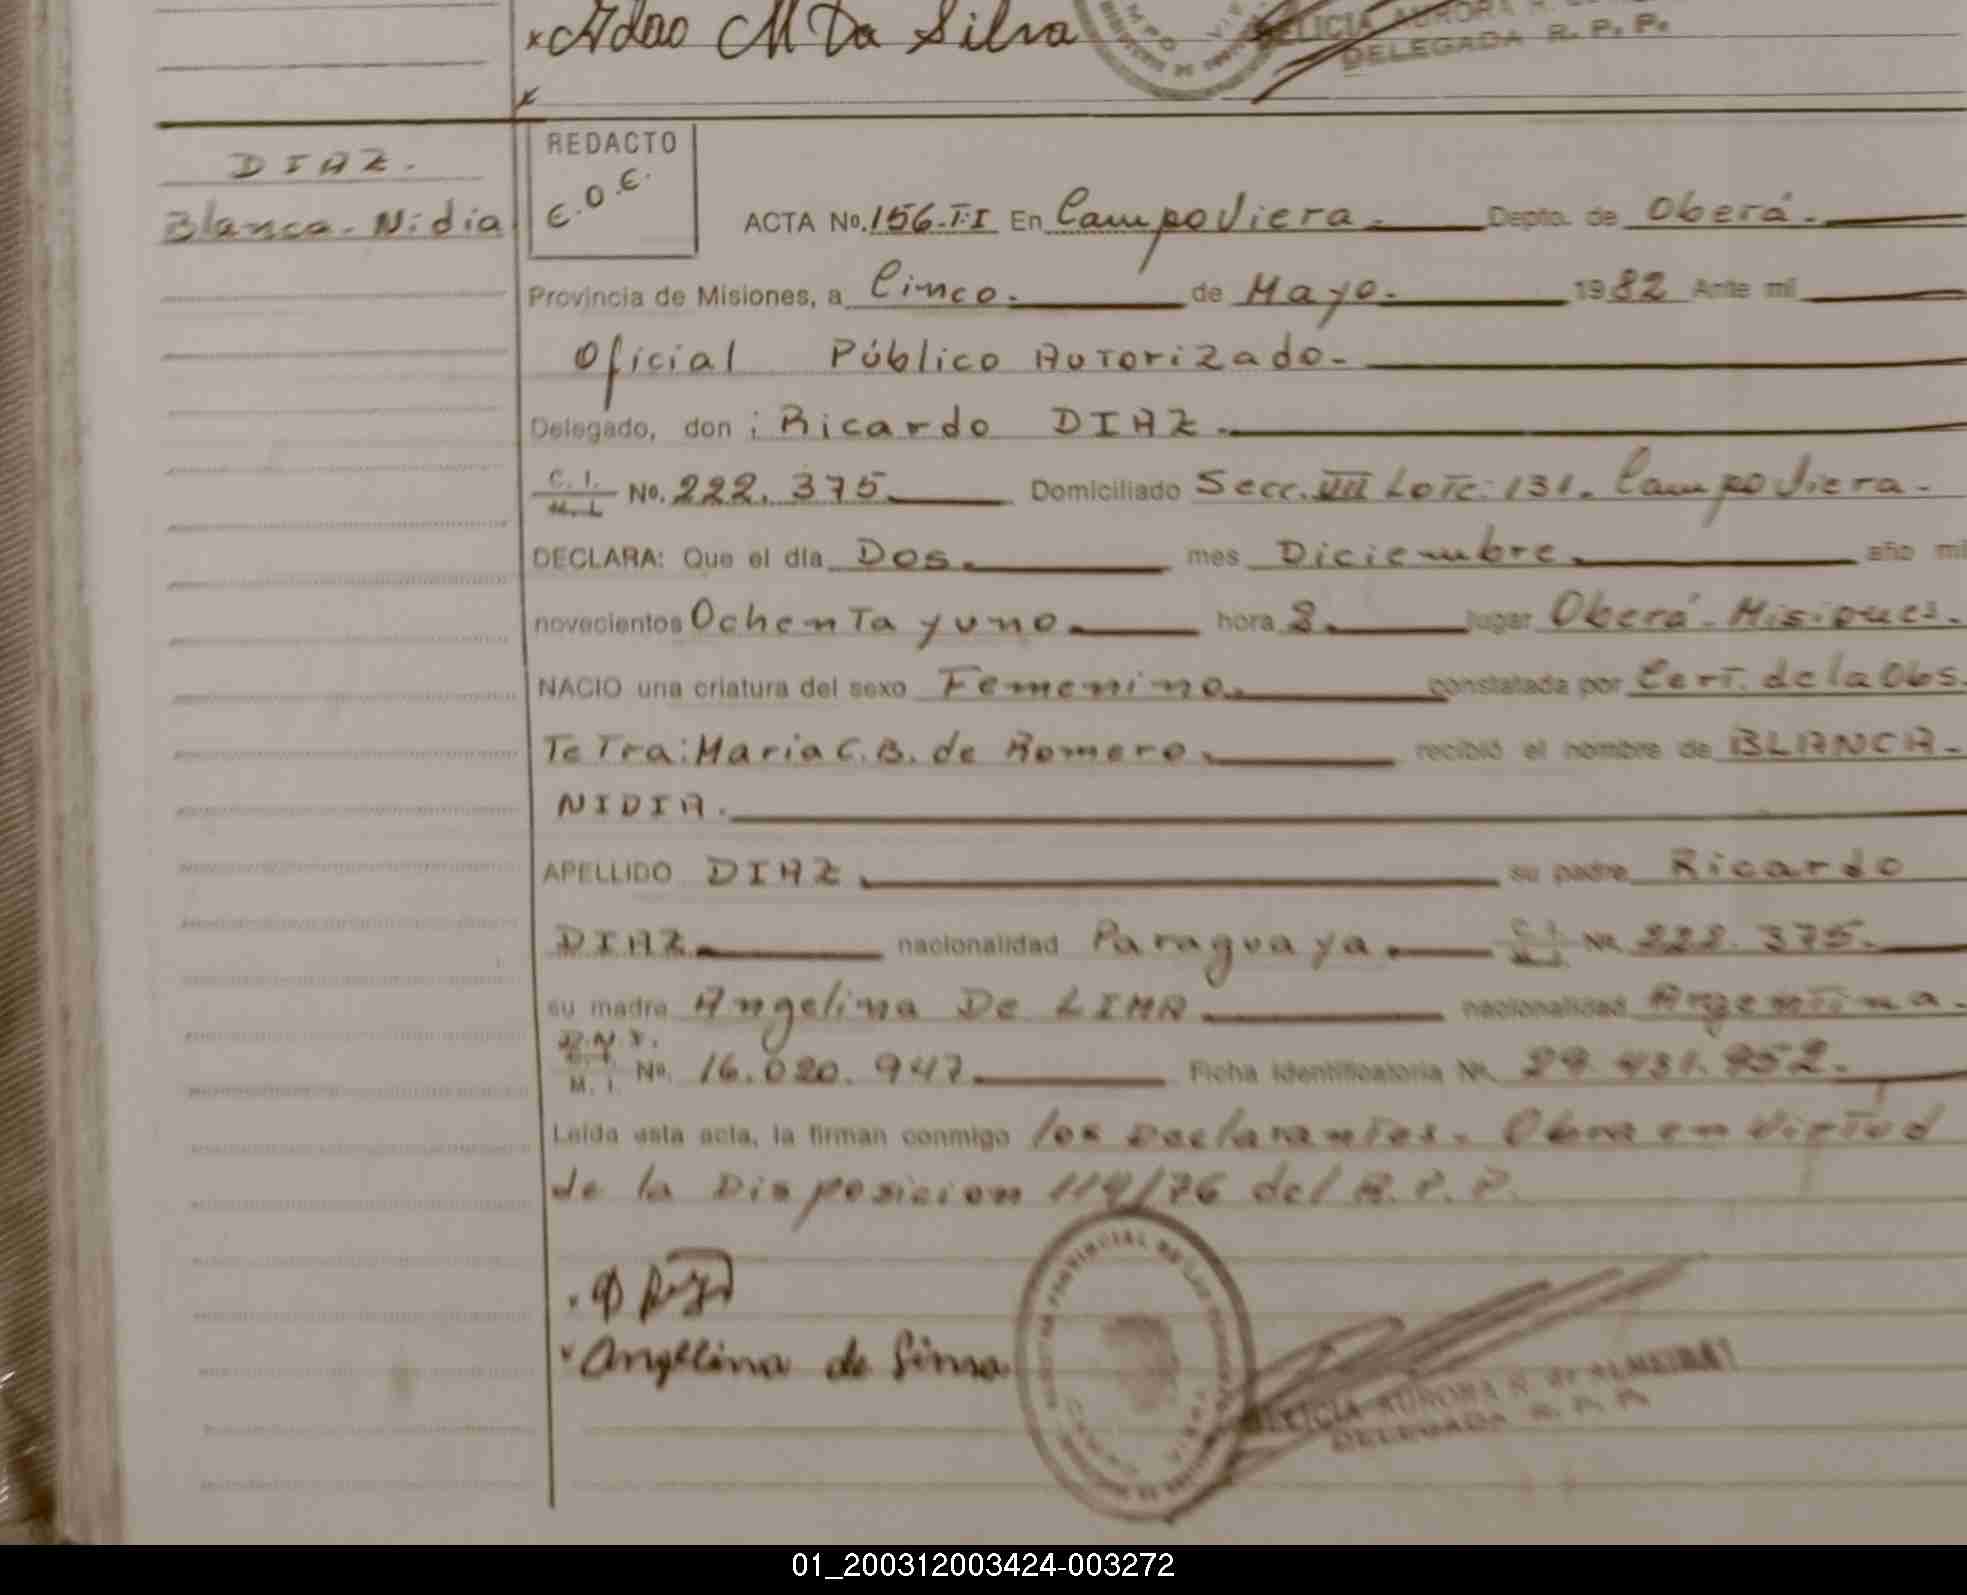 Adao M Da Silva
DELEGADA R. P. P.
DIAZ.
Blanca. Nidia
REDACTO
E.O.E.
ACTA No. 156.T.I En Campo Viera. Depto. de Oberá.
Provincia de Misiones, a Cinco. de Mayo. 1982 Ante mi
Oficial Público Autorizado.
Delegado, don: Ricardo DIAZ.
C. I.
M. I. No. 222.375 Domiciliado Secc. VII Lote: 131. Campo Viera.
DECLARA: Que el día Dos. mes Diciembre. año mi
novecientos Ochenta y uno. hora 8. lugar Oberá. Misiones.
NACIO una criatura del sexo Femenino. constatada por Cert. de la Obs.
Tetra: Maria C. B. de Romero. recibió el nombre de BLANCA.
NIDIA.
APELLIDO DIAZ su padre Ricardo
DIAZ nacionalidad Paraguaya. C. I. No. 222.375.
su madre Angelina De LIMA nacionalidad Argentina.
D.N.I.
M. I. No. 16.020.947. Ficha identificatoria No. 29.431.952.
Leída esta acta, la firman conmigo los Declarantes. Obra en virtud
de la Disposicion 114/76 del R. P. P.
Angelina de
LETICIA AURORA R. de ALMEIDA
DELEGADA R. P. P.
01_200312003424-003272